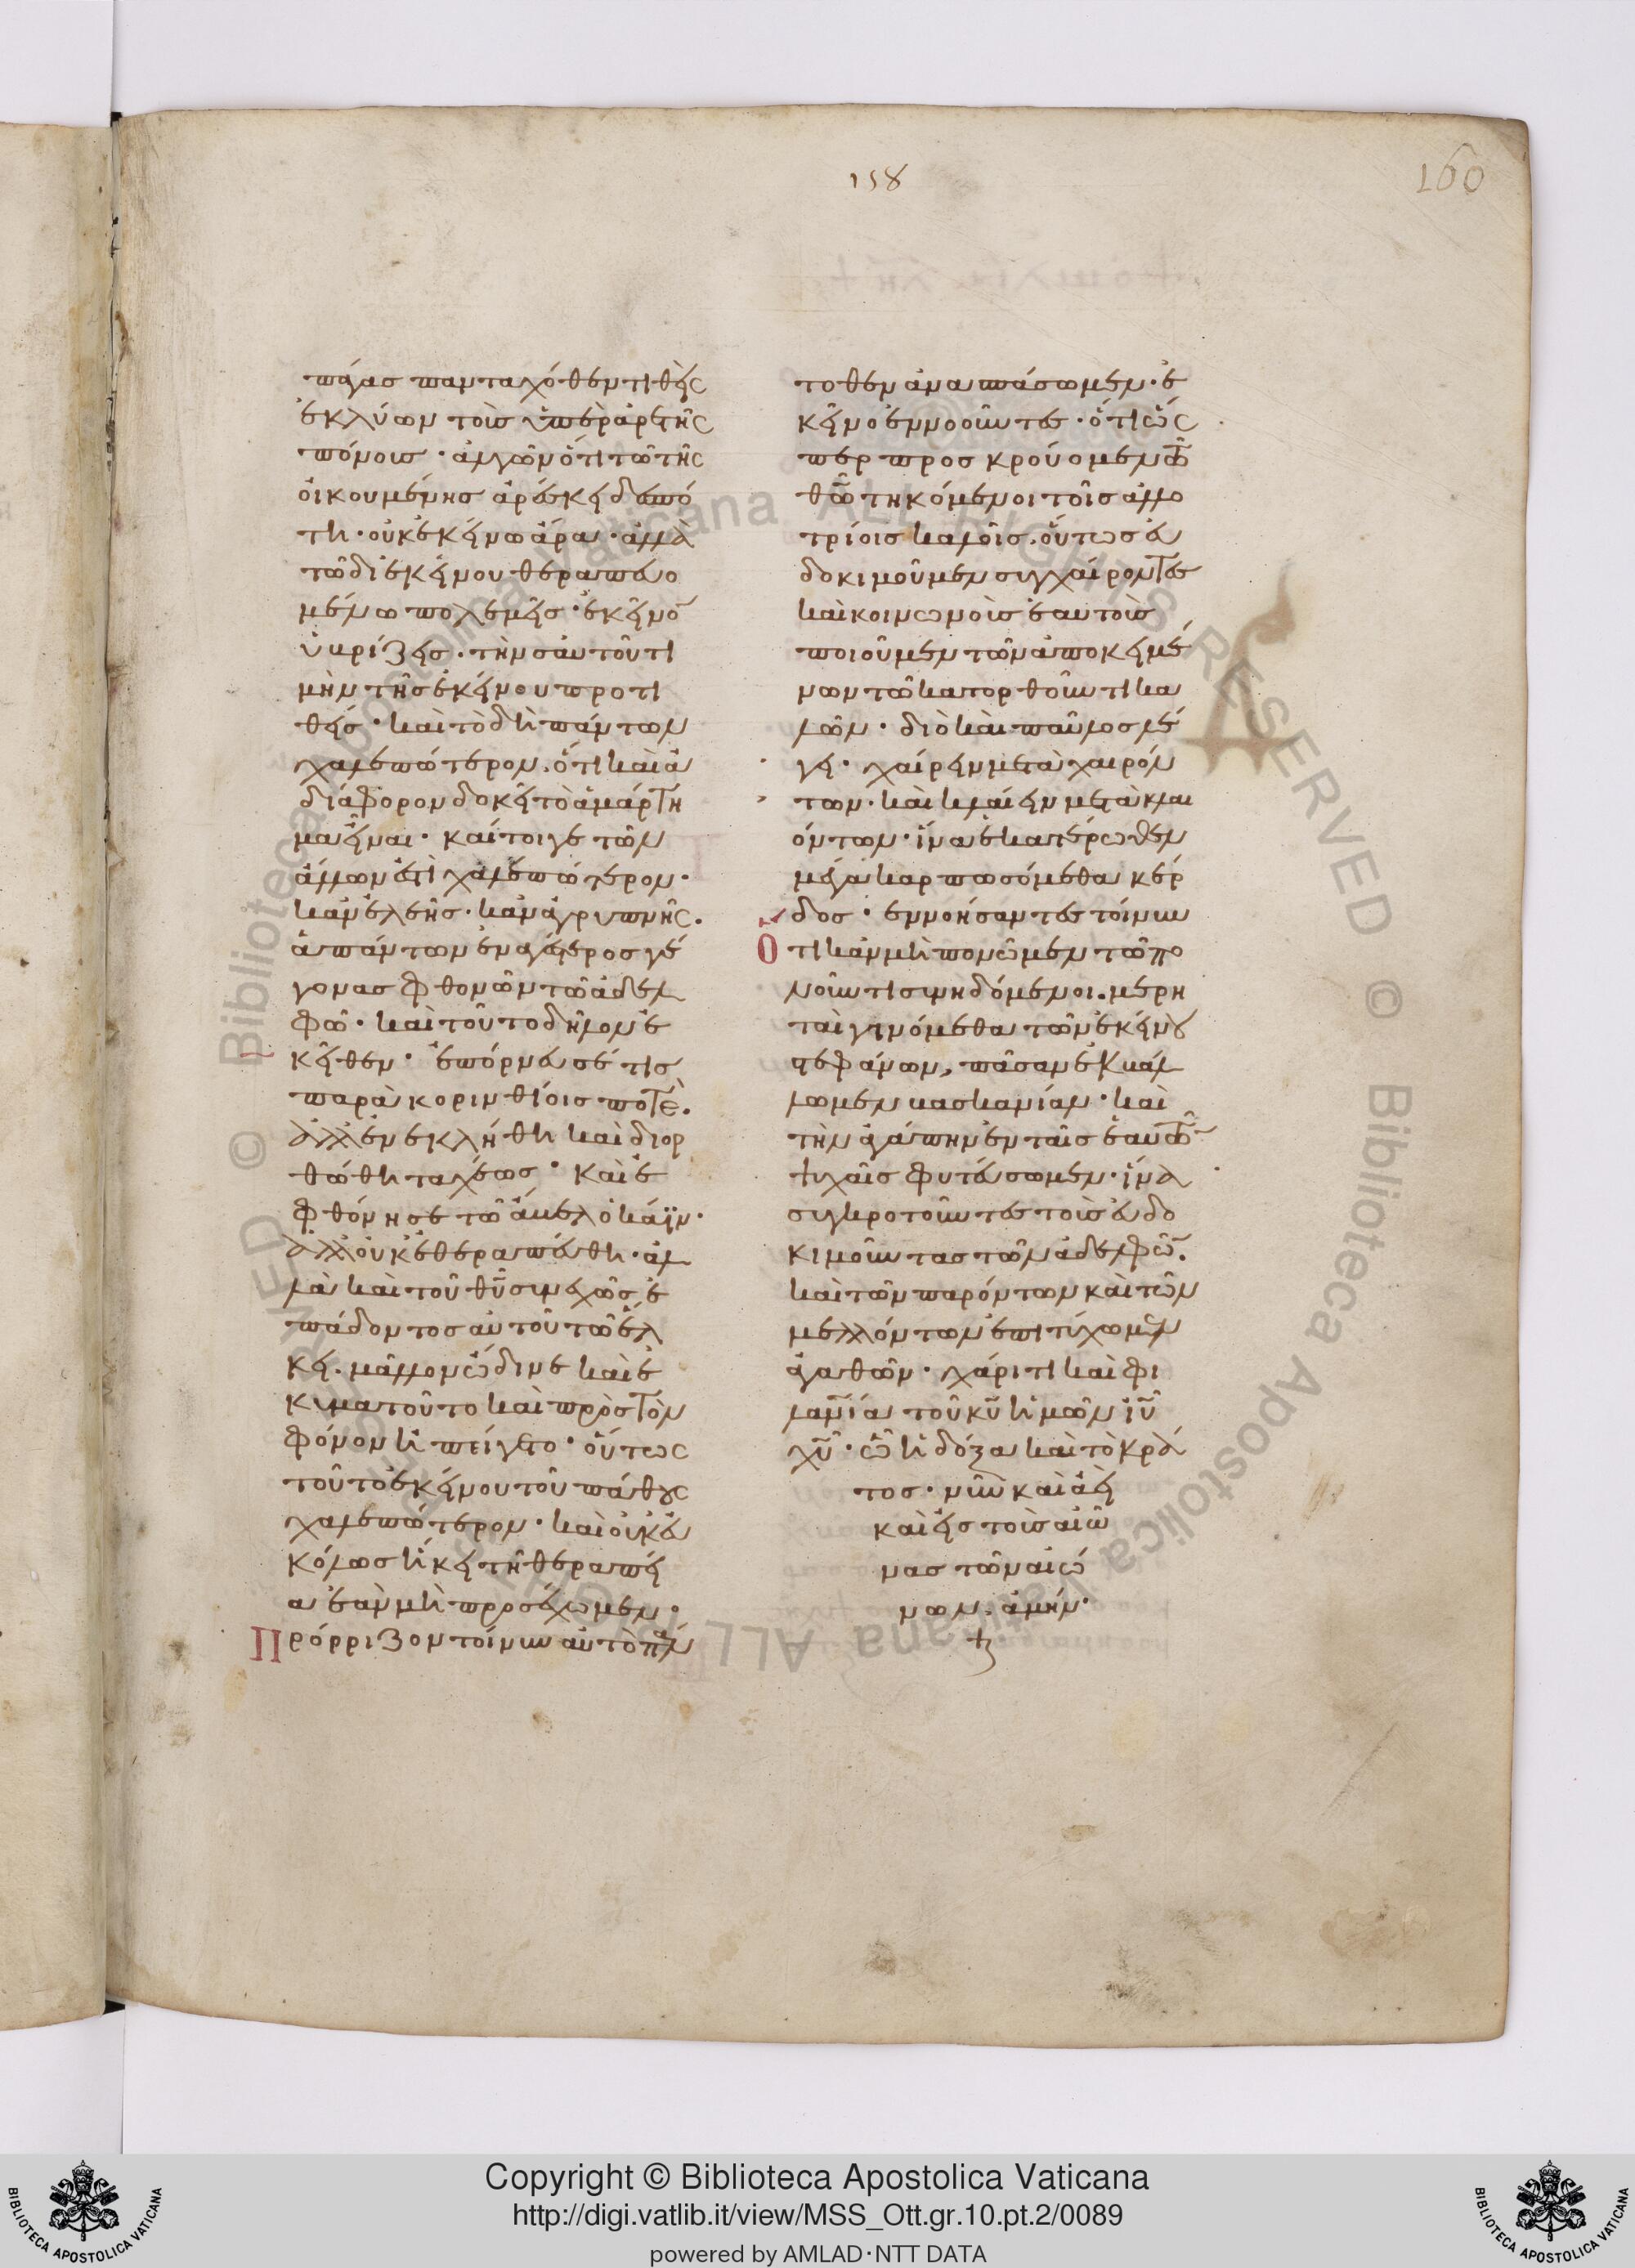 158
160
πάγας πανταχόθεν τιθεὶς
ἐκλύων τοῖς ὑπὲρ ἀρετῆς
πόνοις· ἀλγῶν ὅτι τῶ τῆς
οἰκουμένης ἀρέσκει δεσπό
τη· οὐκ ἐκείνω ἄρα· ἀλλὰ
τῶ δι' ἐκείνου θεραπευο
μένω πολεμεῖς· ἐκεῖνον
ὑβρίζεις· τὴν σαυτοῦ τι
μὴν τῆς ἐκείνου προτι
θείς· καὶ τὸ δὴ πάντων
χαλεπώτερον. ὅτι καὶ ἀ
διάφορον δοκεῖ τὸ ἁμάρτη
μα εἶναι· καίτοιγε τῶν
ἄλλων ἐστὶ χαλεπώτερον·
κἂν ἐλεῆς· κἂν ἀγρυπνῆς.
ἁπάντων ἐναγέστερος γέ
γονας φθονῶν τῶ ἀδελ
φῶ· καὶ τοῦτο δῆλον ἐ
κεῖθεν· ἐπόρνευσέ τις
παρὰ κορινθίοις ποτέ.
ἀλλ' ἐνεκλήθη καὶ διορ
θώθη ταχέως· Καὶ ἐ
φθόνησε τῶ ἄβελ ὁ κάϊν·
ἀλλ' οὐκ ἐθεραπεύθη· ἀλ
λὰ καὶ τοῦ θῦ συνεχῶς ἐ
πάδοντος αὐτοῦ τῶ ἕλ
κει. μᾶλλον ὤδινε καὶ ἐ
κυμα τοῦτο καὶ πρὸς τὸν
φόνον ἠπείγετο· οὕτως
τοῦτο ἐκείνου τοῦ πάθους
χαλεπώτερον· καὶ οὐκ εὐ
κόλως ἥκει τῆ θεραπεί
α ἐὰν μὴ προσέχωμεν·
Πρόρριζον τοίνυν αὐτὸ παν
τοθεν ἀνασπάσωμεν· ἐ
κεῖνο ἐννοοῦντες· ὅτι ὥς
περ προσκρούομεν τῶ
θῶ τηκόμενοι τοῖς ἀλλο
τρίοις καλοῖς. οὕτως εὐ
δοκιμοῦμεν συγχαίροντες
καὶ κοινωνοὺς ἑαυτοὺς
ποιοῦμεν τῶν ἀποκειμέ
νων τῶ κατορθοῦντι κα
λῶν· διὸ καὶ παῦλος λέ
γει· χαίρειν μετὰ χαιρόν
των· καὶ κλαίειν μετὰ κλαι
όντων· ἵνα ἑκατέρωθεν
μέγα καρπωσόμεθα κέρ
δος· ἐννοήσαντες τοίνυν
Ὅτι κἂν μὴ πονῶμεν τῶ πο
νοῦντι συνηδόμενοι. μερη
ταὶ γινόμεθα τῶν ἐκείνου
στεφάνων, πᾶσαν ἐκβάλ
λωμεν βασκανίαν· καὶ
τὴν ἀγάπην ἐν ταῖς ἑαυτῶν
ψυχαῖς φυτεύσωμεν· ἵνα
συγκροτοῦντες τοὺς εὐδο
κιμοῦντας τῶν ἀδελφῶν.
καὶ τῶν παρόντων καὶ τῶν
μελλόντων ἐπιτύχωμεν
ἀγαθῶν· χάριτι καὶ φι
λανία τοῦ κῦ ἡμῶν ἰῦ
χῦ· ὧ ἡ δόξα καὶ τὸ κρά
τος· νῦν καὶ ἀεὶ
καὶ εἰς τοὺς αἰῶ
νας τῶν αἰώ
νων. ἀμήν·
Copyright © Biblioteca Apostolica Vaticana
http://digi.vatlib.it/view/MSS_Ott.gr.10.pt.2/0089
powered by AMLAD·NTT DATA
BIBLIOTECA APOSTOLICA VATICANA
BIBLIOTECA APOSTOLICA VATICANA